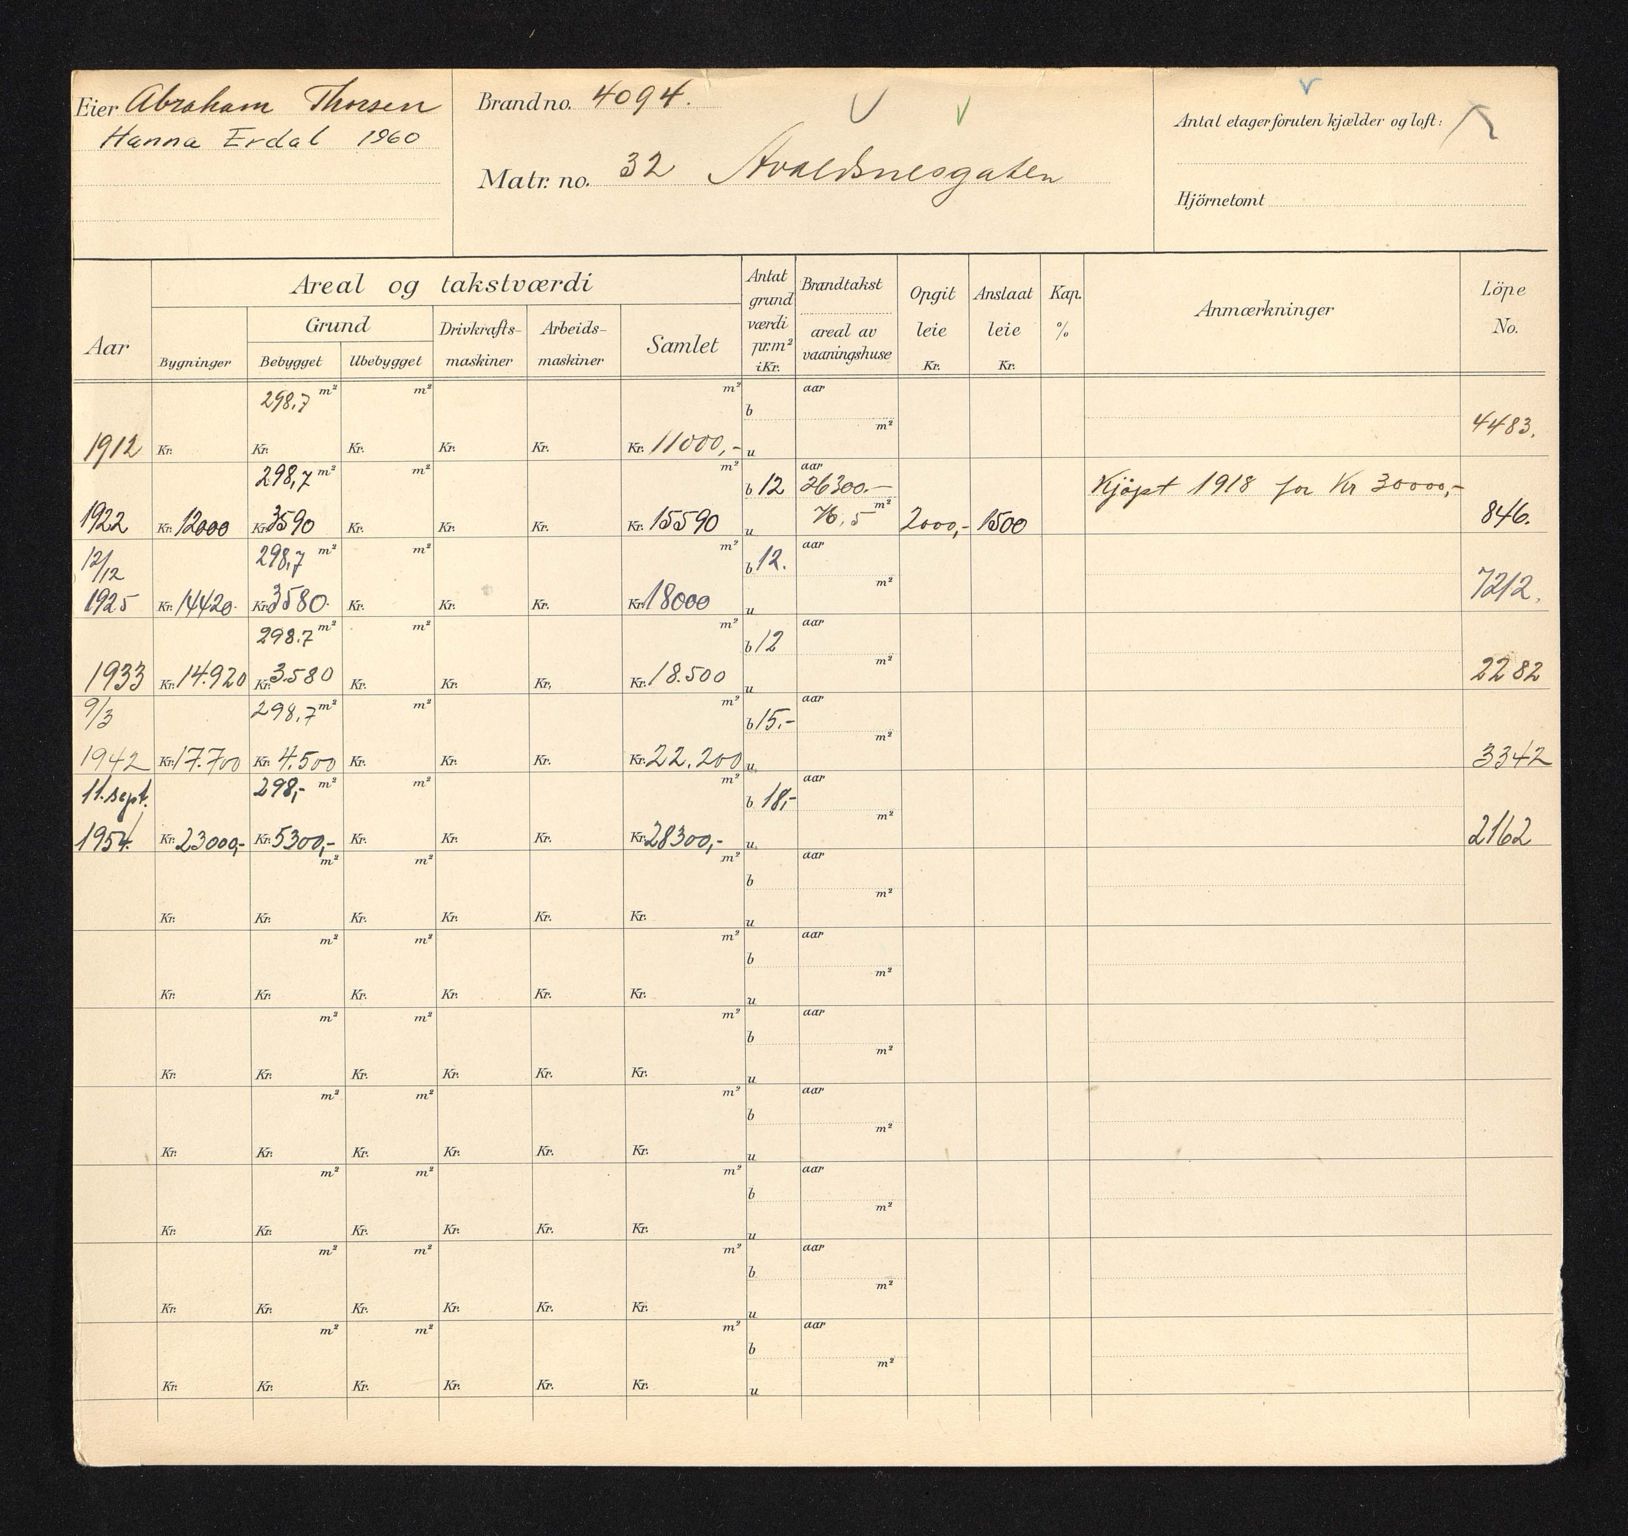 Eier Abraham Thorsen
Hanna Erdal 1960
Brand no. 4094.
Matr. no. 32 Avaldsnesgaten
Antal etager foruten kjælder og loft:
Hjörnetomt
Aar
Areal og takstværdi
Bygninger
Grund
Bebygget Ubebygget
Drivkrafts-
maskiner
Arbeids-
maskiner
Samlet
Antat
grund
værdi
pr.m²
i Kr.
Brandtakst
areal av
vaaningshuse
Opgit
leie
Kr.
Anslaat
leie
Kr.
Kap.
%
Anmærkninger
Löpe
No.
298,7 m² m² m² b aar
1912 Kr. Kr. Kr. Kr. Kr. Kr. 11000,- u m² 4483.
298,7 m² m² m² b 12 aar 26300.- Kjøpt 1918 for Kr 30000,-
1922 Kr. 12000 Kr. 3590 Kr. Kr. Kr. Kr. 15590 u 76,5 m² 2000,- 1500 846.
12/12 298,7 m² m² m² b 12. aar
1925 Kr. 14420. Kr. 3580. Kr. Kr. Kr. Kr. 18000 u m² 7212.
298.7 m² m² m² b 12 aar
1933 Kr. 14.920 Kr. 3.580 Kr. Kr. Kr. Kr. 18.500 u m² 2282
9/3 298,7 m² m² m² b 15.- aar
1942 Kr. 17.700 Kr. 4.500 Kr. Kr. Kr. Kr. 22.200 u m² 3342
11. sept. 298,- m² m² m² b 18,- aar
1954. Kr. 23000,- Kr. 5300,- Kr. Kr. Kr. Kr. 28300,- u m² 2162
m² m² m² b aar
Kr. Kr. Kr. Kr. Kr. Kr. u m²
m² m² m² b aar
Kr. Kr. Kr. Kr. Kr. Kr. u m²
m² m² m² b aar
Kr. Kr. Kr. Kr. Kr. Kr. u m²
m² m² m² b aar
Kr. Kr. Kr. Kr. Kr. Kr. u m²
m² m² m² b aar
Kr. Kr. Kr. Kr. Kr. Kr. u m²
m² m² m² b aar
Kr. Kr. Kr. Kr. Kr. Kr. u m²
m² m² m² b aar
Kr. Kr. Kr. Kr. Kr. Kr. u m²